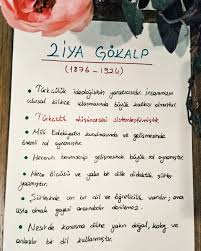 ZİYA GÖKALP
(1876 - 1924)
• Türkçülük ideolojisinin yaratıcısıdır. İnsanımızın
ulusal bilince ulaşmasında büyük katkısı olmuştur.
• Türkçülük düşüncesini sistemleştirmiştir.
• Milli Edebiyatın kurulmasında ve gelişmesinde
önemli rol oynamıştır.
• Hecenin benimsenip gelişmesinde büyük rol oynamıştır.
• Hece ölçüsü ve yalın bir dille didaktik, şiirler
yazmıştır.
• Şiirlerinde arı bir dil ve öğreticilik vardır; ama
usta olmak gayesi
• Nesirde konuşma diline yakın doğal, kolay ve
anlaşılır bir dil kullanmıştır.